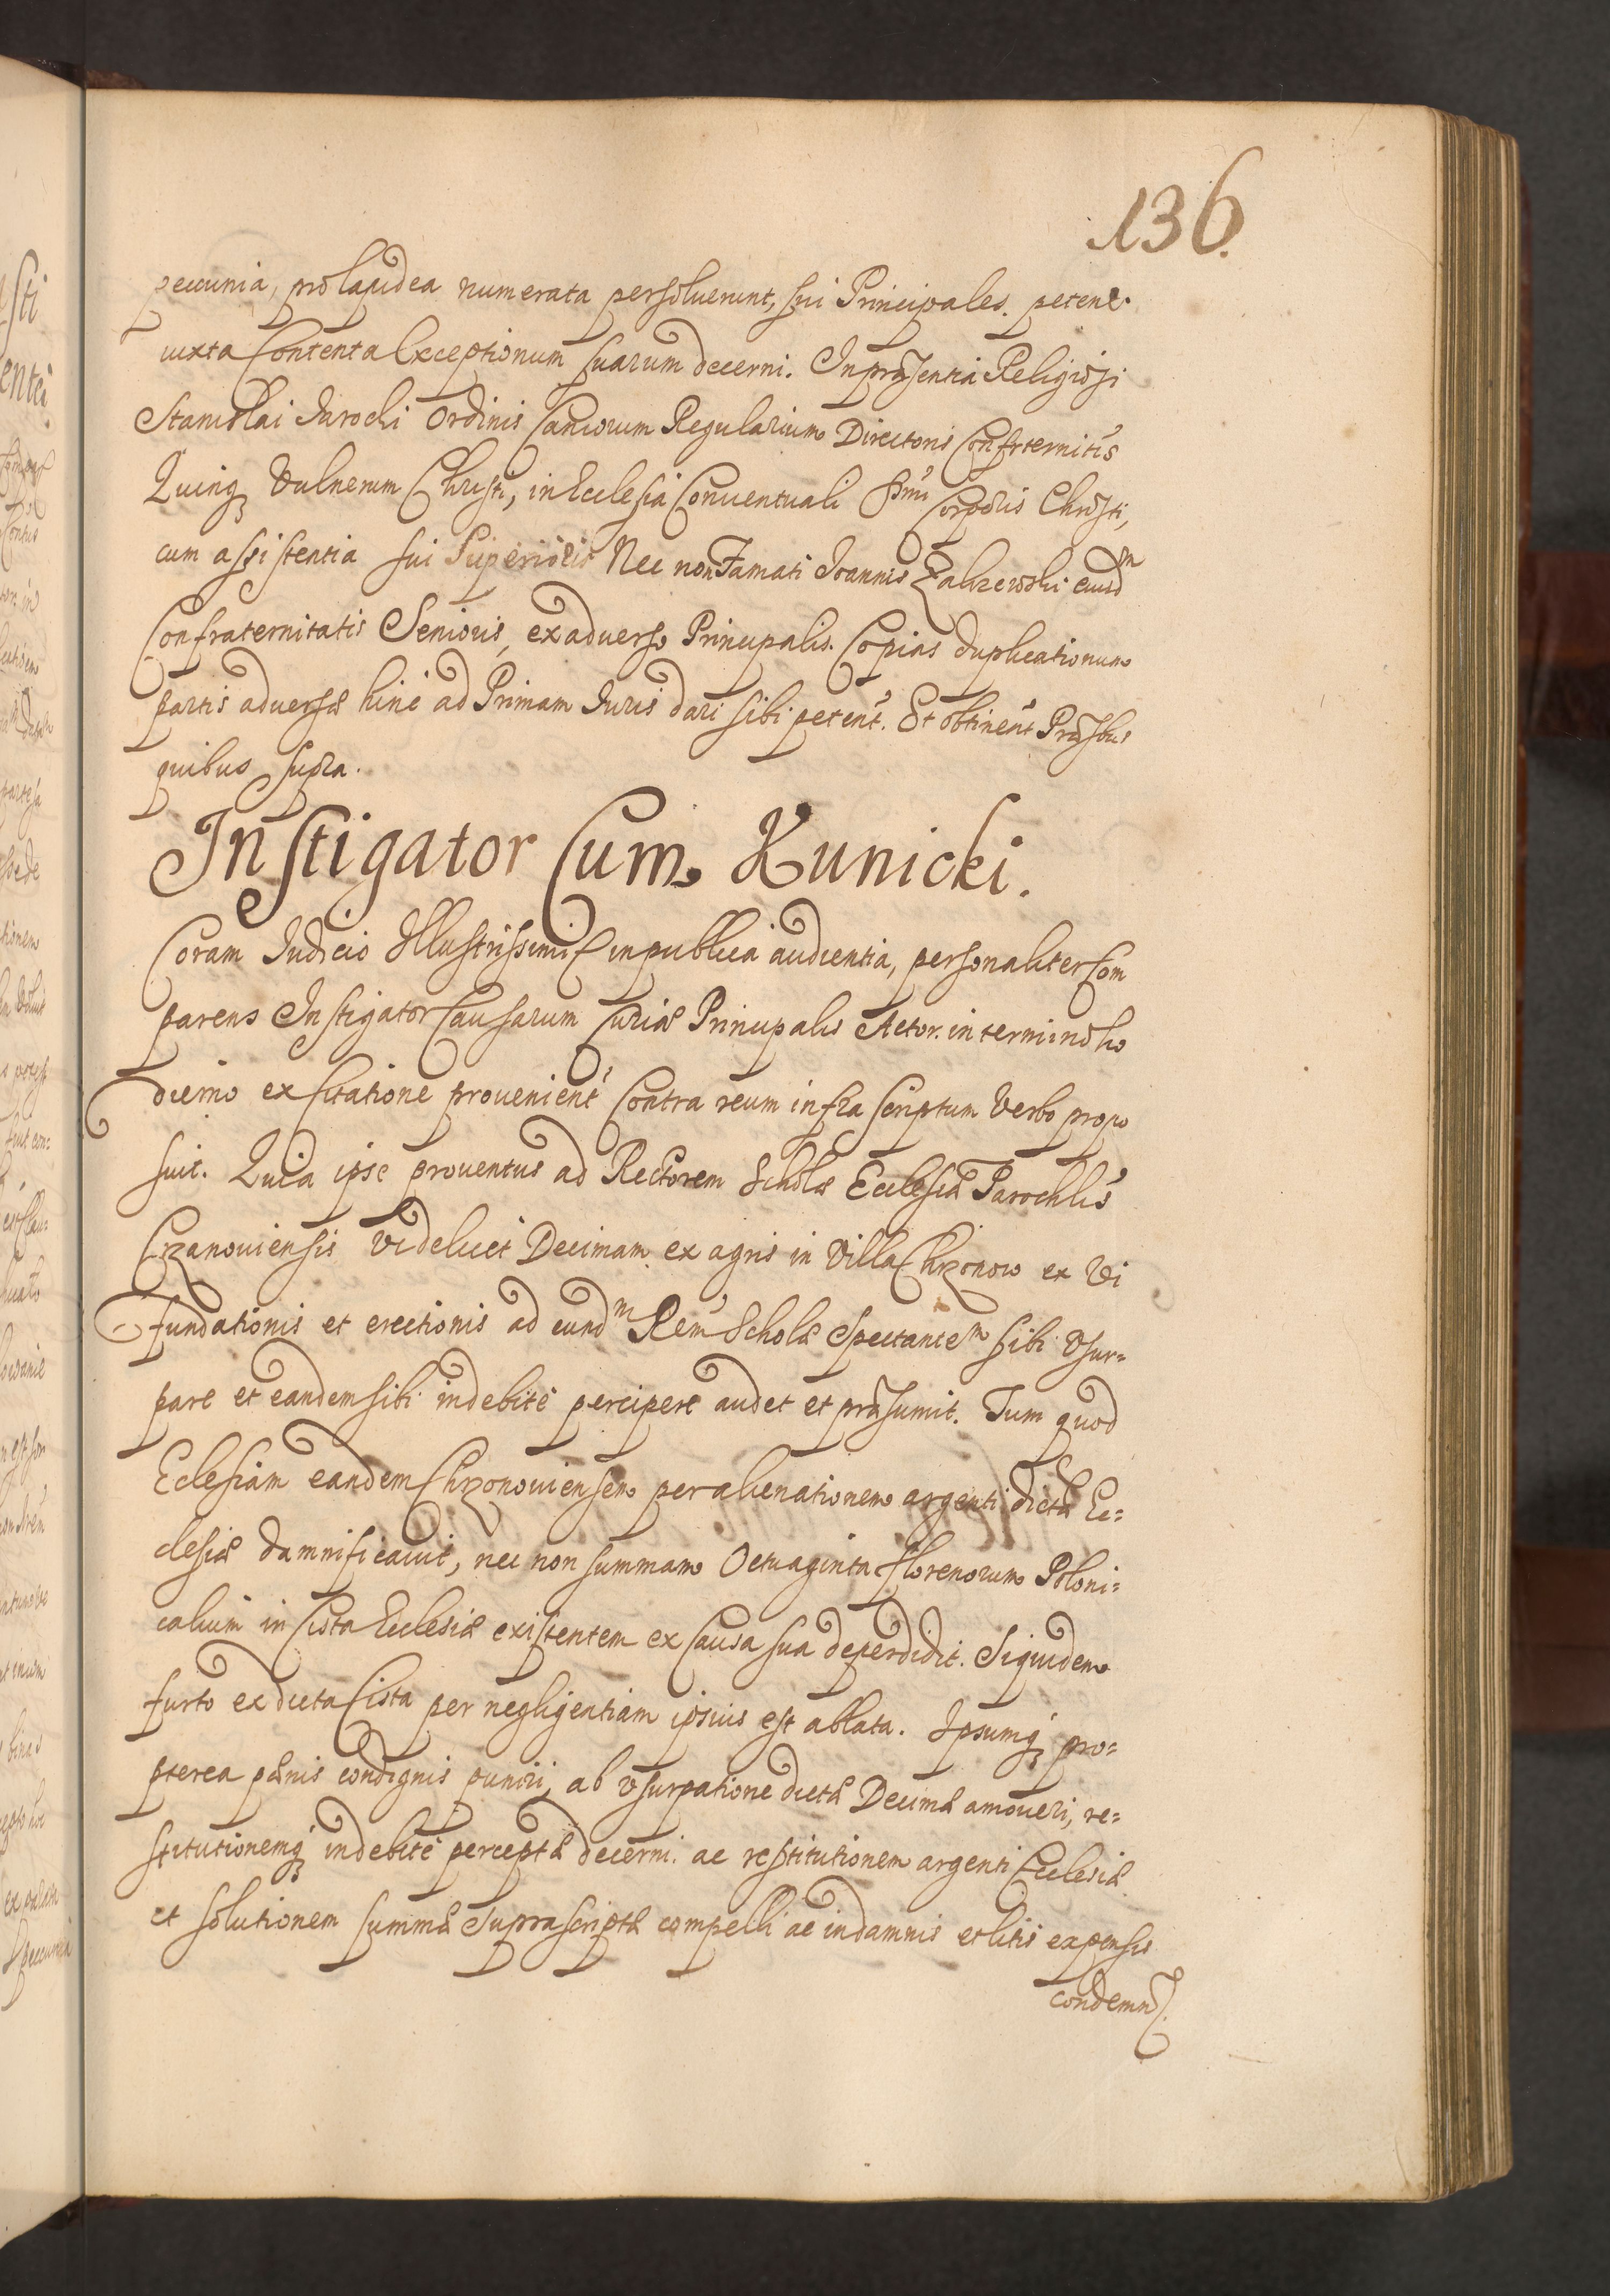 136.
pecunia, pro lapidea numerata persoluerunt, sui Principales. petent.
iuxta Contenta Exceptionum suarum decerni. In praesentia Religiosi
Stanislai Jarocki Ordinis Canicorum Regularium Directoris Confrternitis
Quinq Vulnerum Christi, in Ecclesia Conuentuali Ssmi Corporis Christi,
cum assistentia sui Superioris Nec non Famati Joannis Zalizewski eiusdm
Confraternitatis Senioris, ex aduerso Principalis. Copias duplicationum
partis aduersae hinc ad Primam Juris dari sibi petent. Et obtinent Prasbus
quibus supra.
Instigator Cum Kunicki.
Coram Judicio Illustrissimi in publica audientia, personaliter Com
parens Instigator Causarum Curiae Principalis Actor. in termino ho
dierno ex Citatione prouenient Contra reum infra scriptum Verbo propo
suit. Quia ipse prouentus ad Rectorem Scholae Ecclesiae Parochlis
Crzanouiensis videlicet Decimam ex agris in Villa Chrzonow ex Vi
fundationis et erectionis ad eundm Rem Scholae Spectantem sibi Vsur=
pare et eandem sibi indebite percipere audet et praesumit. Tum quod
Eclesiam eandem Chrzonouiensem per alienationem argenti dictae Ec=
clesiae damnificauit, nec non summam Octuaginta florenorum Poloni=
calium in Cista Ecclesiae existentem ex Causa sua deperdidit. Siquidem
furto ex dicta Cista per negligentiam ipsius est ablata. Ipsumq pro=
pterea paenis condignis puniri, ab vsurpatione dictae Decimae amoueri, re=
stitutionemq indebite perceptae decerni. ac restitutionem argenti Ecclesiae
et solutionem summae suprascriptae compelli ac in damnis et litis expensis
condemn